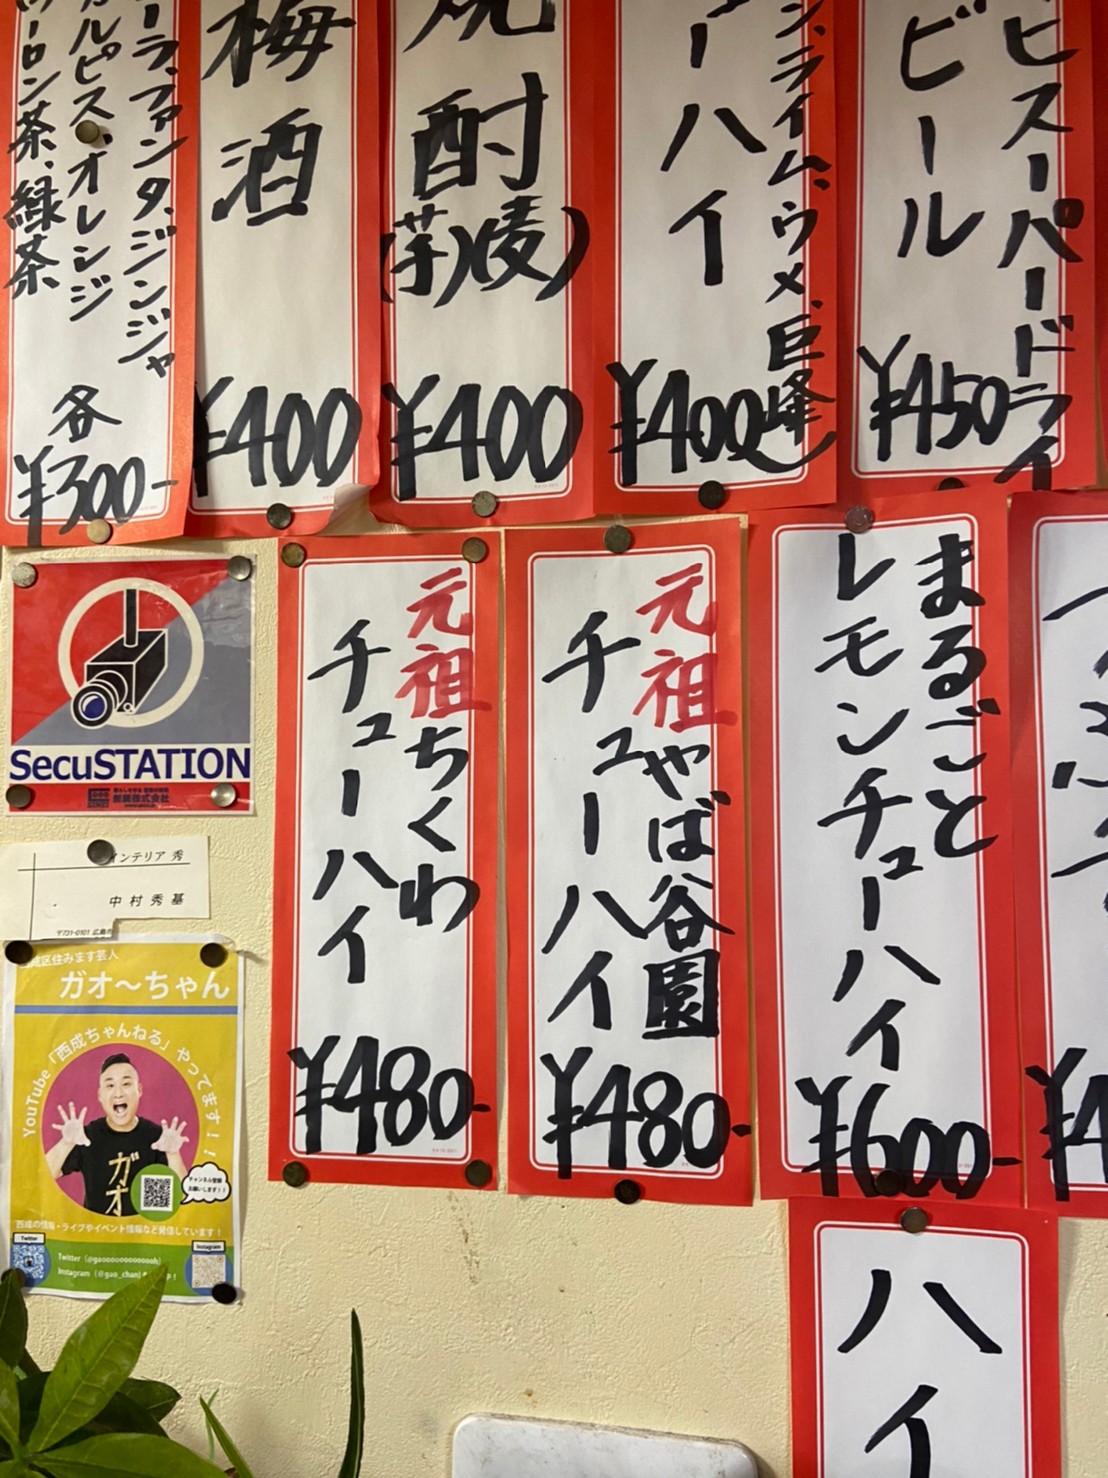 ヒスーパードライ
ビール
¥450
ン、ライム、ウメ、巨峰)
ーハイ
¥400
酎
(芋)(麦)
¥400
梅
酒
¥400
ーラ、ファンタ、ジンジャ
ルピス、オレンジ
ーロン茶、緑茶
各
¥300-
まるごと
レモンチューハイ
¥600-
元祖やば谷園
チューハイ
¥480-
元祖ちくわ
チューハイ
¥480-
ハイ
SecuSTATION
インテリア 秀
中村秀基
〒731-0101 広島市
西成区住みます芸人
ガオ〜ちゃん
YouTube「西成ちゃんねる」やってます！！
ガオ
チャンネル登録
お願いします！！
西成の情報・ライブやイベント情報など発信しています！
Twitter
Instagram